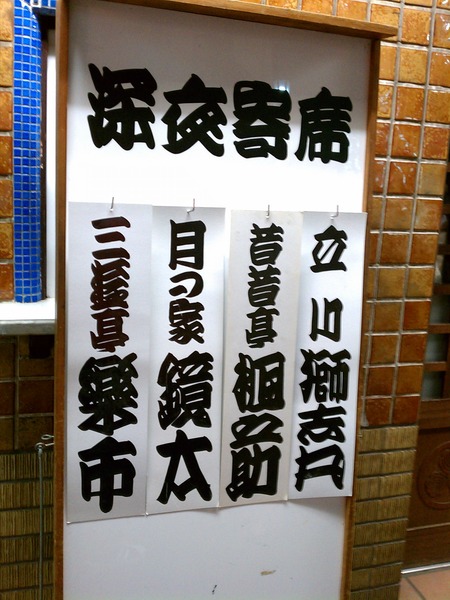 深夜寄席
立川獅志丸
昔昔亭桃之助
月の家鏡太
三遊亭樂市